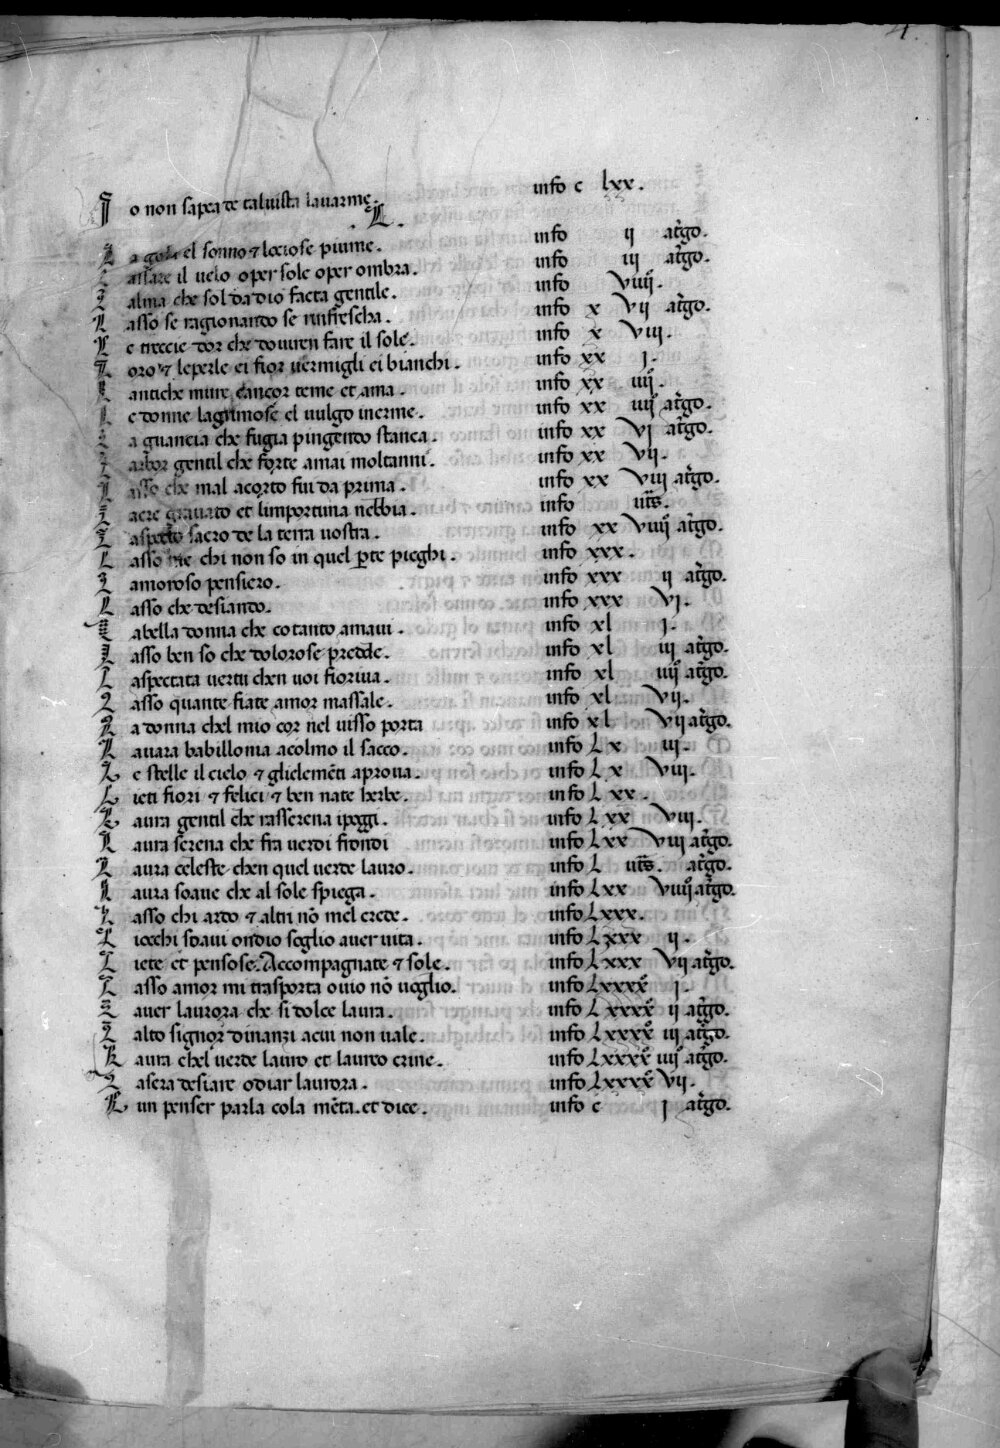 4.
Io non sapea de tal uista lauarme. info c lxx.
.L.
La gola el sonno ⁊ lociose piume. info ij at̃go.
Lassare il uelo oper sole oper ombra. info iij at̃go.
Lalma che sol da dio facta gentile. info viiijº.
Lasso se ragionando se rinfrescha. info x vij at̃go.
Le treccie dor che douren fare il sole. info x viij.
Loro ⁊ leperle ei fior uermigli ei bianchi. info xx j.
Lantiche mure cancor teme et ama. info xx iiijº.
Le donne lagrimose el uulgo inerme. info xx iiijº at̃go.
La guancia che fugia pingendo stanca. info xx vj at̃go.
Larbor gentil che forte amai moltanni. info xx vij.
Lasso che mal acorto fui da prima. info xx viij at̃go.
Laere grauato et limportuna nebbia. info ut̃s.
Laspecto sacro de la terra uostra. info xx viiijº at̃go.
Lasso me chi non so in quel p̱te pieghi. info xxx.
Lamoroso pensiero. info xxx ij at̃go.
Lasso che desiando. info xxx vj.
Labella donna che cotanto amaui. info xl j.
Lasso ben so che dolorose predde. info xl iij at̃go.
Laspectata uertu chen uoi fioriua. info xl iiijº at̃go.
Lasso quante fiate amor massale. info xl vij.
La donna chel mio cor nel uisso porta info xl vij at̃go.
Lauara babillonia acolmo il sacco. info L x iij.
Le stelle il cielo ⁊ glielemẽti aproua. info L x viij.
Lieti fiori ⁊ felici ⁊ ben nate herbe. info L xx.
Laura gentil che rasserena ipoggi. info L xx viij.
Laura serena che fra uerdi frondi info Lxx viij at̃go.
Laura celeste chen quel uerde lauro. info L ut̃s. at̃go.
Laura soaue che al sole spiega. info Lxx viiijº at̃go.
Lasso chi ardo ⁊ altri nõ mel crede. info Lxxx.
Liocchi soaui ondio soglio auer uita. info Lxxx ij.
Liete et pensose. Accompagnate ⁊ sole. info Lxxx vij at̃go.
Lasso amor mi trasporta ouio nõ uoglio. info Lxxxxº j.
Lauer laurora che si dolce laura. info Lxxxxº ij at̃go.
Lalto signor dinanzi acui non uale. info Lxxxxº iij at̃go.
Laura chel uerde lauro et laureo crine. info Lxxxxº iiijº at̃go.
Lasera desiare odiar laurora. info Lxxxxº vij.
Lun penser parla cola mẽta. et dice. info c j at̃go.